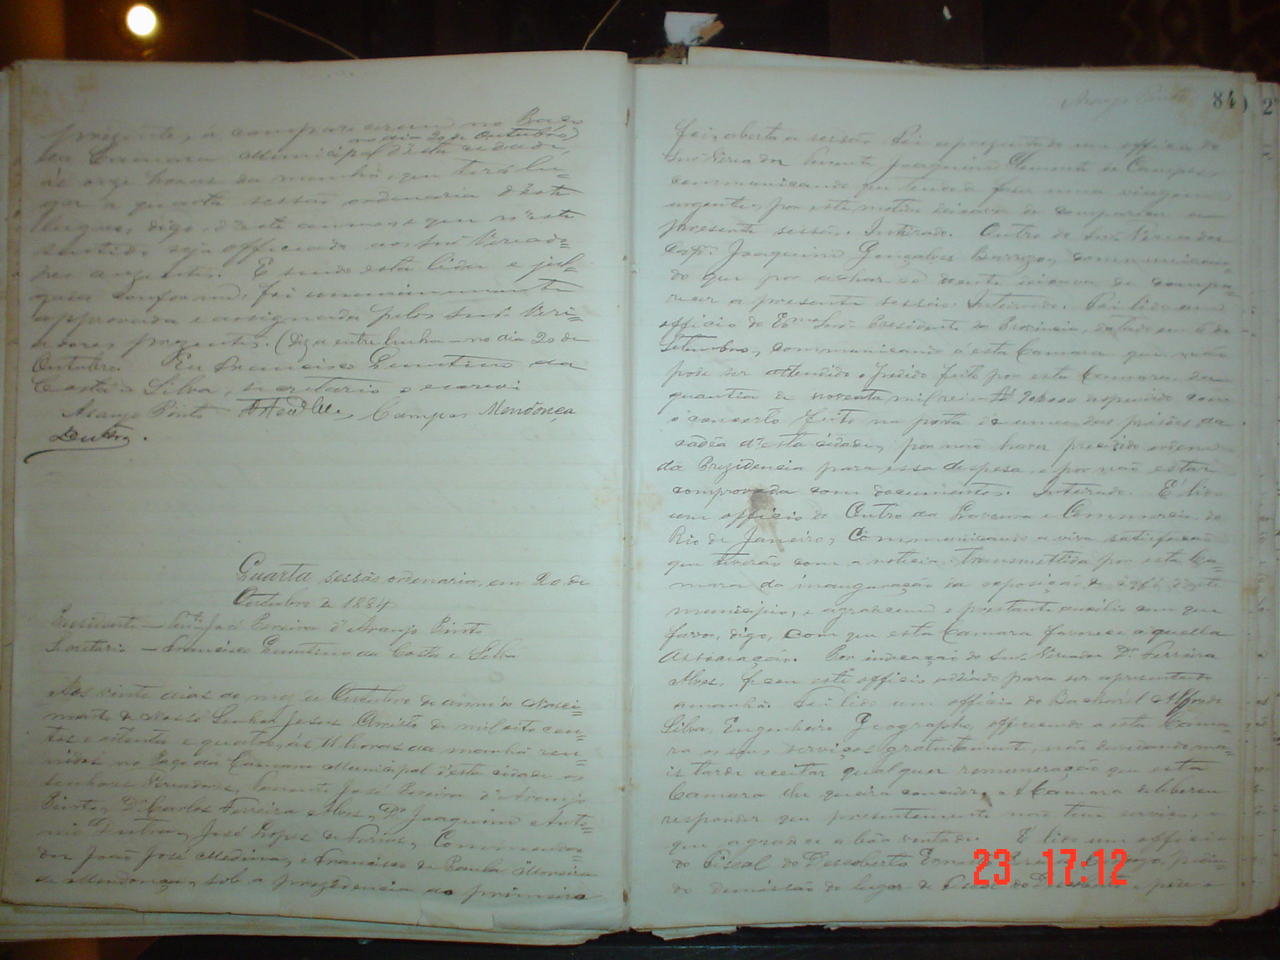 presente, a comparecerem no Paço
no dia 20 de Outubro
da Camara Municipal d'esta cidade,
ás onze horas da manhã, que terá lu-
gar a quarta sessão ordenaria d'este
digo, d'este anno, e que n'este
sentido seja officiado aos Snres Veriado-
res auzentes. E sendo esta lida e jul-
gada conforme, foi unanimemente
approvada e assignada pelos Snres Veri-
adores presentes. (Diz a entre linha - no dia 20 de
Outubro. Eu Francisco Quintino da
Costa e Silva, secretario o escrevi
Araujo Pinto Campos Mendonça
Dutra.
Quarta sessão ordenaria, em 20 de
Outubro de 1884
Presidente - Tente José Pereira d'Araujo Pinto
Secretario - Francisco Quintino da Costa e Silva
Aos vinte dias do mez de Outubro do anno do Nasci-
mento de Nosso Senhor Jesus Christo de mil oito cen-
tos e oitenta e quatro, ás 11 horas da manhã reu-
nidos no Paço da Camara Municipal d'esta cidade os
senhores Veriadores, Tenente José Pereira d'Araujo
Pinto, Dr Carlos Ferreira Alves, Dr Joaquim Anto-
nio Dutra, José Lopes de Farias, Commenda-
dor João José Medina, e Francisco de Paula Moreira
de Mendonça, sob a prezidencia do primeiro
Araujo Pinto 84
foi aberta a sessão. Foi apresentado um officio do
Snr Veriador Tenente Joaquim Clemente de Campos
communicando que tendo de fazer uma viagem
urgente, por este motivo deixava de comparecer na
presente sessão. Inteirado. Outro do Snr Veriador
Capm Joaquim Gonçalves Barrozo, communican-
do que por achar-se doente deixava de compa-
recer a presente sessão. Inteirado. Foi lido um
officio do Exmo Snr Presidente da Provincia, datado em 6 de
Setembro, communicando á esta Camara que não
pode ser attendido o pedido feito por esta Camara da
quantia de noventa mil reis despendido com
o concerto feito na porta de uma das prisões da
cadêa d'esta cidade, por não haver precedido ordem
da Prezidencia para essa despesa, e por não estar
comprovada com documentos. Inteirado. É lido
um officio do Centro da Lavoura e Commercio do
Rio de Janeiro, Communicando a viva satisfação
que tiverão com a noticia transmettida por esta Ca-
mara da inauguração da exposição de café d'este
municipio, e agradecem o prestante auxilio com que
favor, digo, com que esta Camara favorece a quella
Associação. Por indicação do Snr Veriador Dr Ferreira
Alves, ficou este officio addiado para ser apresentado
amanhã. Foi lido um officio do Bacharel Alfredo
Silva, Engenheiro Geographo, offerecendo a esta Cama-
ra os seus serviços gratuitamente, não devidando ma-
is tarde aceitar qualquer remuneração que esta
Camara lhe queira conceder. A Camara deliberou
responder que presentemente não tem serviços, e
que agradece a bôa vontade. É lido um officio
do Fiscal do Descoberto pedin-
do demissão do lugar de Fiscal do Descoberto e pede a
23 17:12